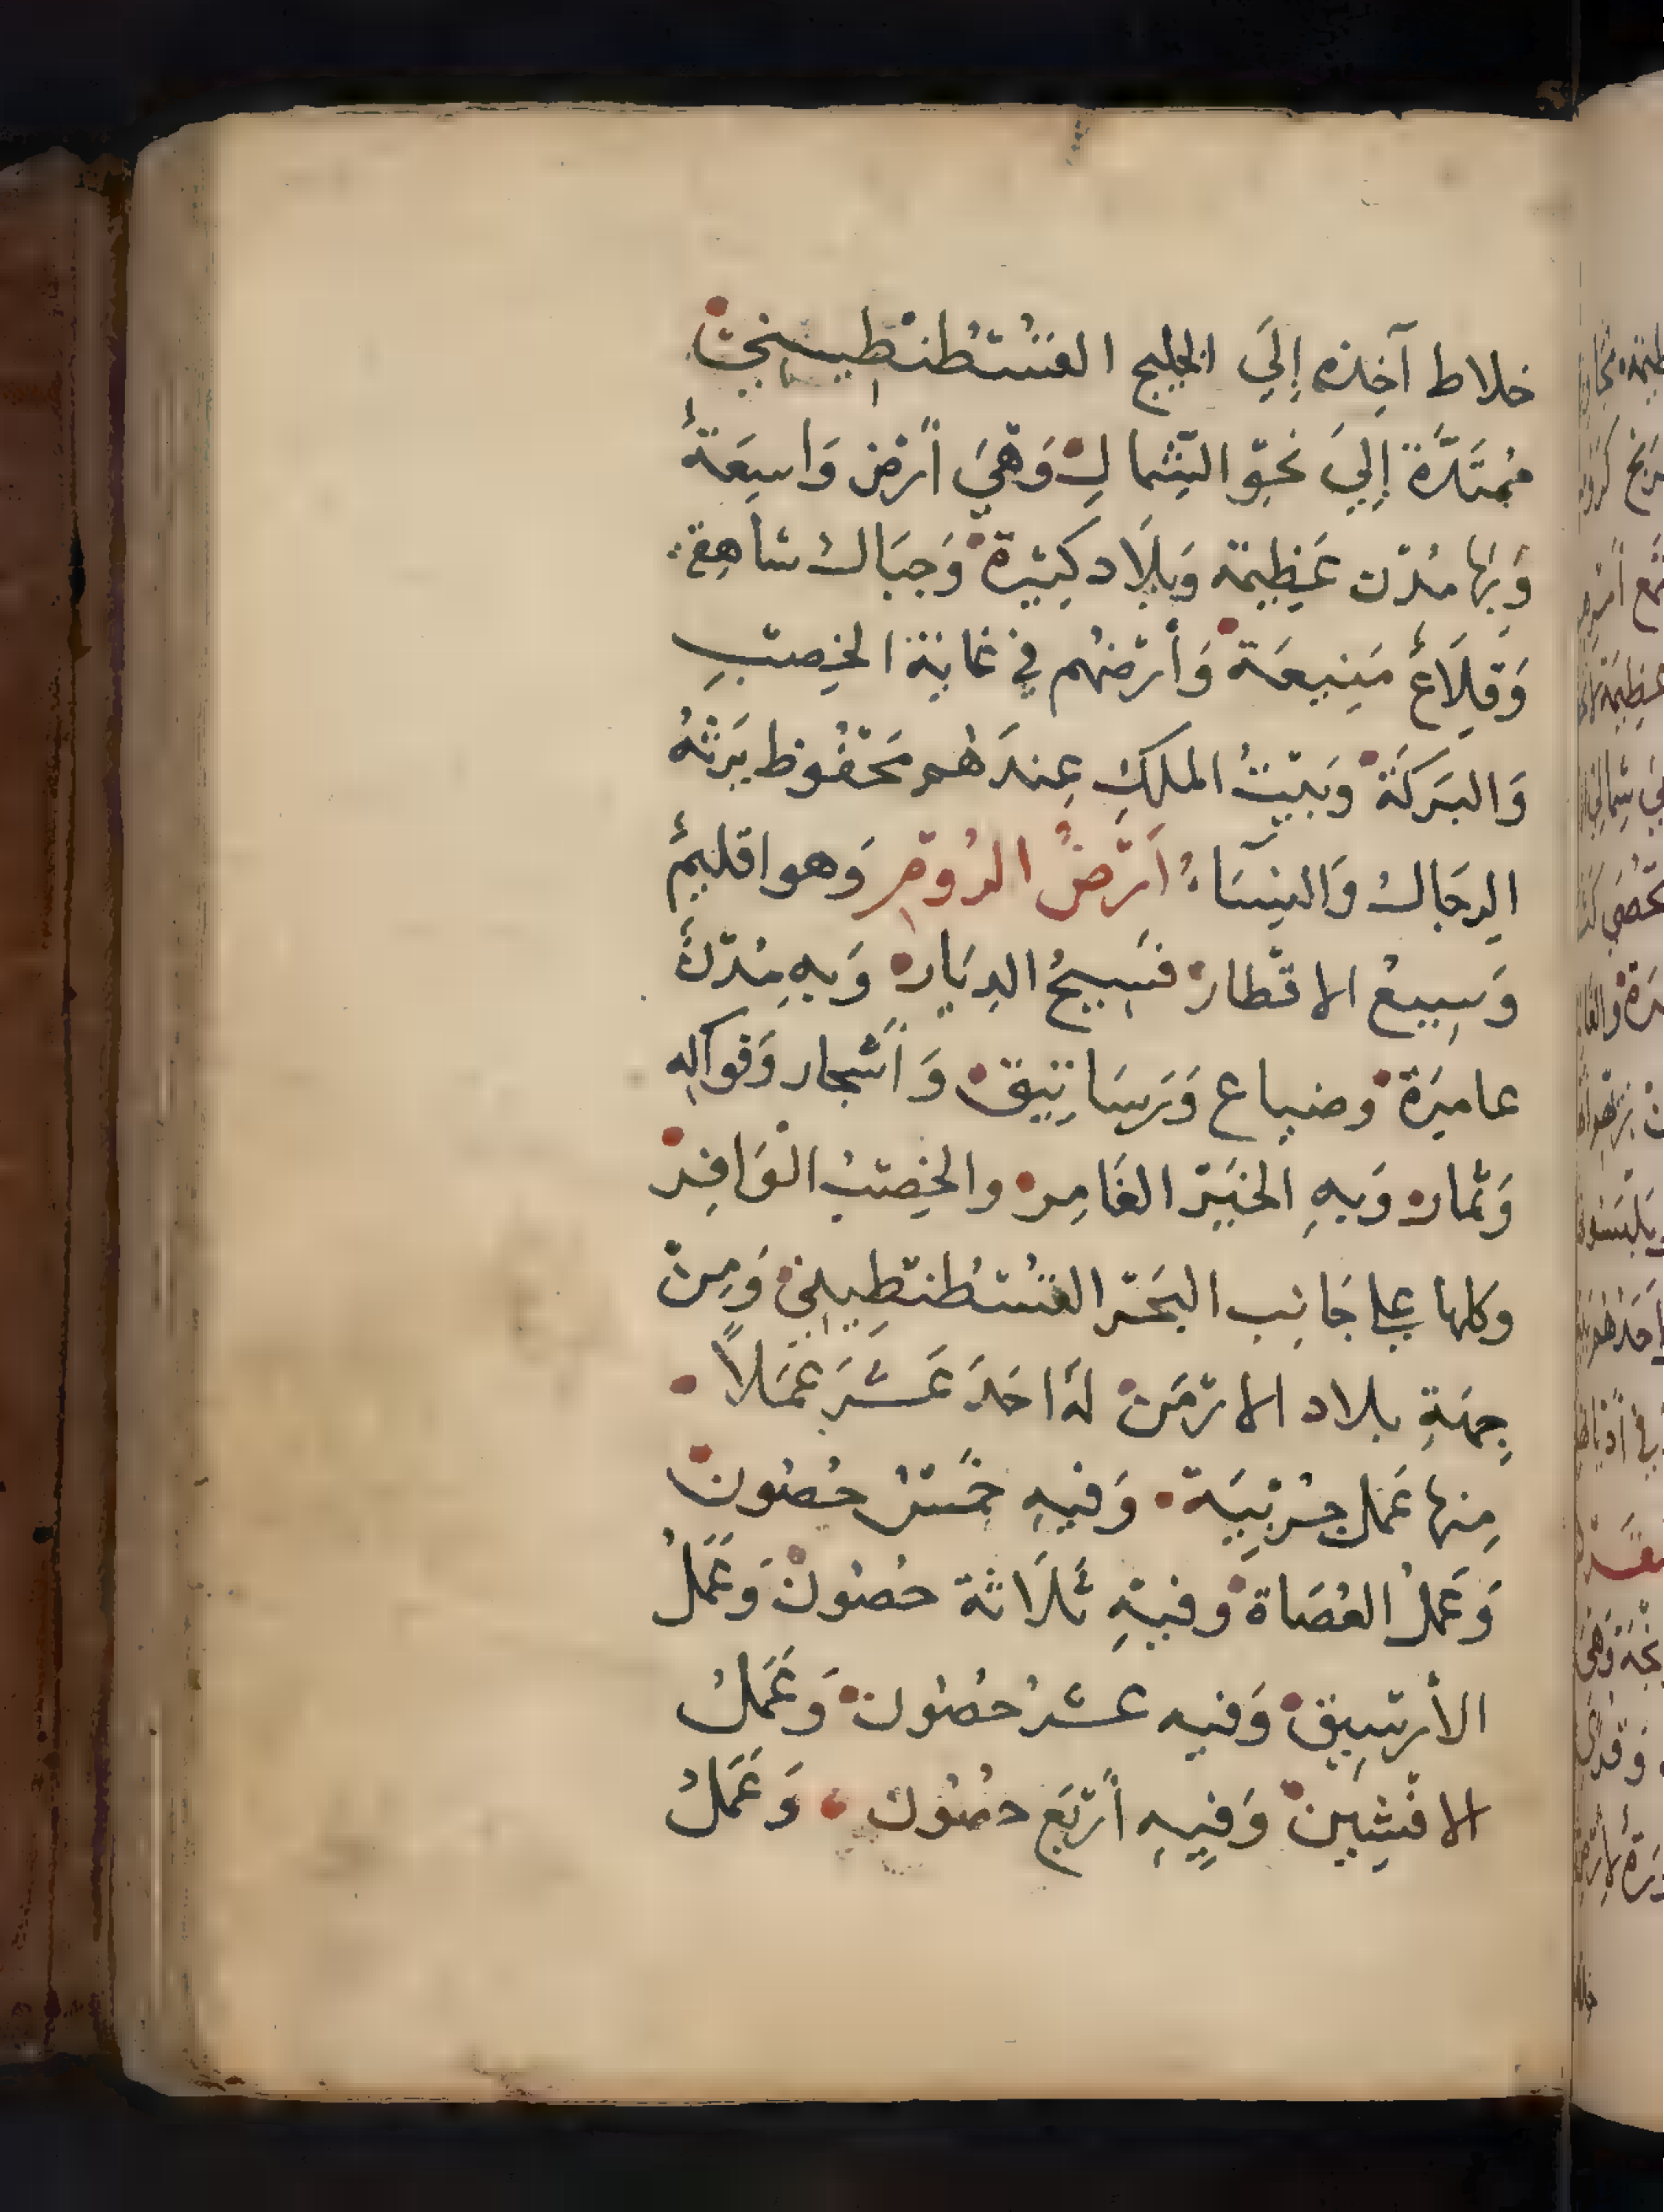 خلاط آخِذه إِلَي الخليج القُسْطَنْطِيني
مُمْتَدَّة إِلَيَ نَحْو الشِّمالِ وَهْيَ أَرْض وَاسِعَةٌ
وَبِهَا مُدْن عَظِيمَة وَبِلَاد كَثِيرة وَجِبَالٌ شاهِقة
وَقِلَاعٌ مَنِيعَة وَأرْضهُم فِي غَايَة الخِصْبِ
وَالبَرَكَة وَبَيْتُ الملكِ عِندَهُم مَحْفُوظ يَرِثهُ
الرِجَالُ وَالنِسَاءُ أَرْضُ الرُوْمِ وَهو اقليمٌ
وَسِيعُ الاقْطار فسَيِحُ الدِيَار وَبهِ مُدْنٌ
عامِرَة وضياع وَرَسَاتِيق وَأَشْجار وَفَوَاكِه
وَثمار وَبهِ الخَيْر الغَامِر والخِصْبُ الْوَافِرْ
وكلها علي جَانِب البَحْر القُسْطَنْطِيني وَمِنْ
جِهَةِ بلاد الارْمَن لهَ احَدَ عَشَرَ عَمَلاً
مِنها عَمَل جرْبِيَة وَفيهِ خَمْسُ حُصُون
وَعَمَلُ العُصَاة وفيهِ ثَلَاثة حُصُون وَعَمَلُ
الأرسِيق وَفيه عشرُ حُصُون وَعَمَلُ
الافْشِين وَفِيهِ أَرْبَع حصُون وَعَمَلُ